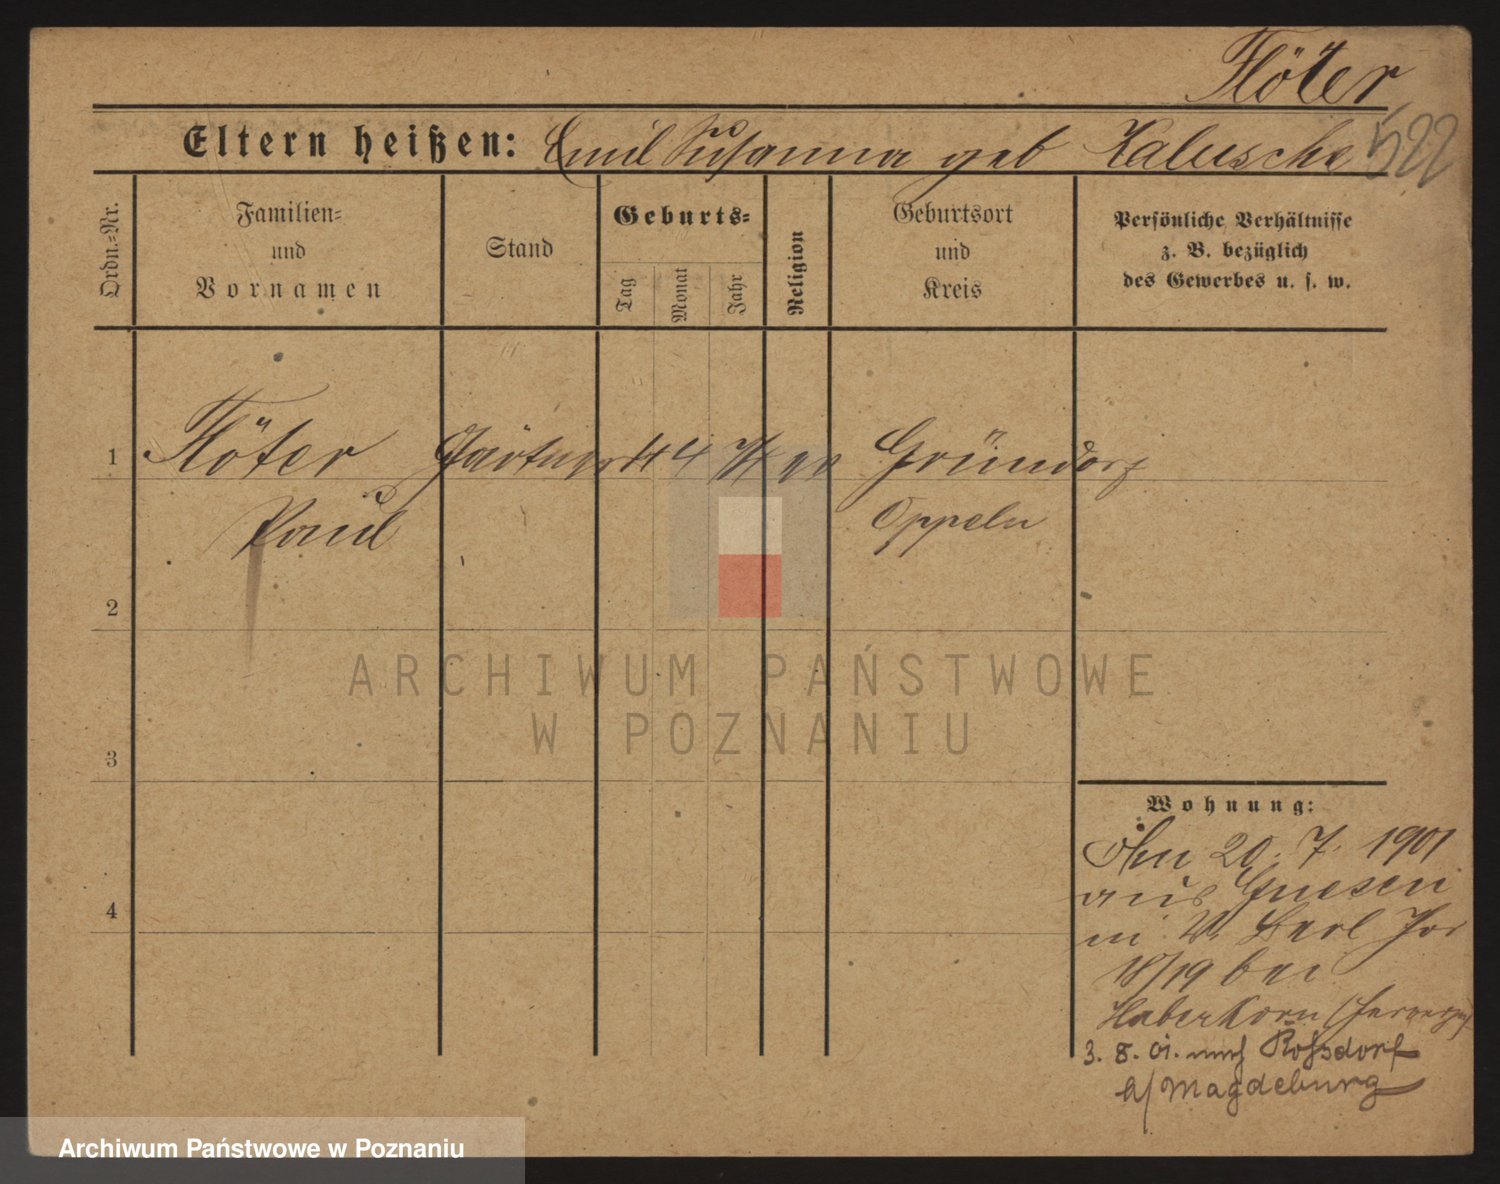 Flöter
Eltern heißen: Emil Susanna geb Kaluscha
522
Ordn.-Nr.
Familien-
und
Vornamen
Stand
Geburts-
Tag
Monat
Jahr
Religion
Geburtsort
und
Kreis
Persönliche Verhältnisse
z. B. bezüglich
des Gewerbes u. s. w.
1 Flöter Gärtner 4 4 ev Gründorf
Paul Oppeln
2
3
4
ARCHIWUM PAŃSTWOWE
W POZNANIU
Wohnung:
An 20. 7. 1901
aus Gnesen
in W.
18/19 bei
Haberkorn
3. 8. 01. nach Roßdorf
b/ Magdeburg
Archiwum Państwowe w Poznaniu